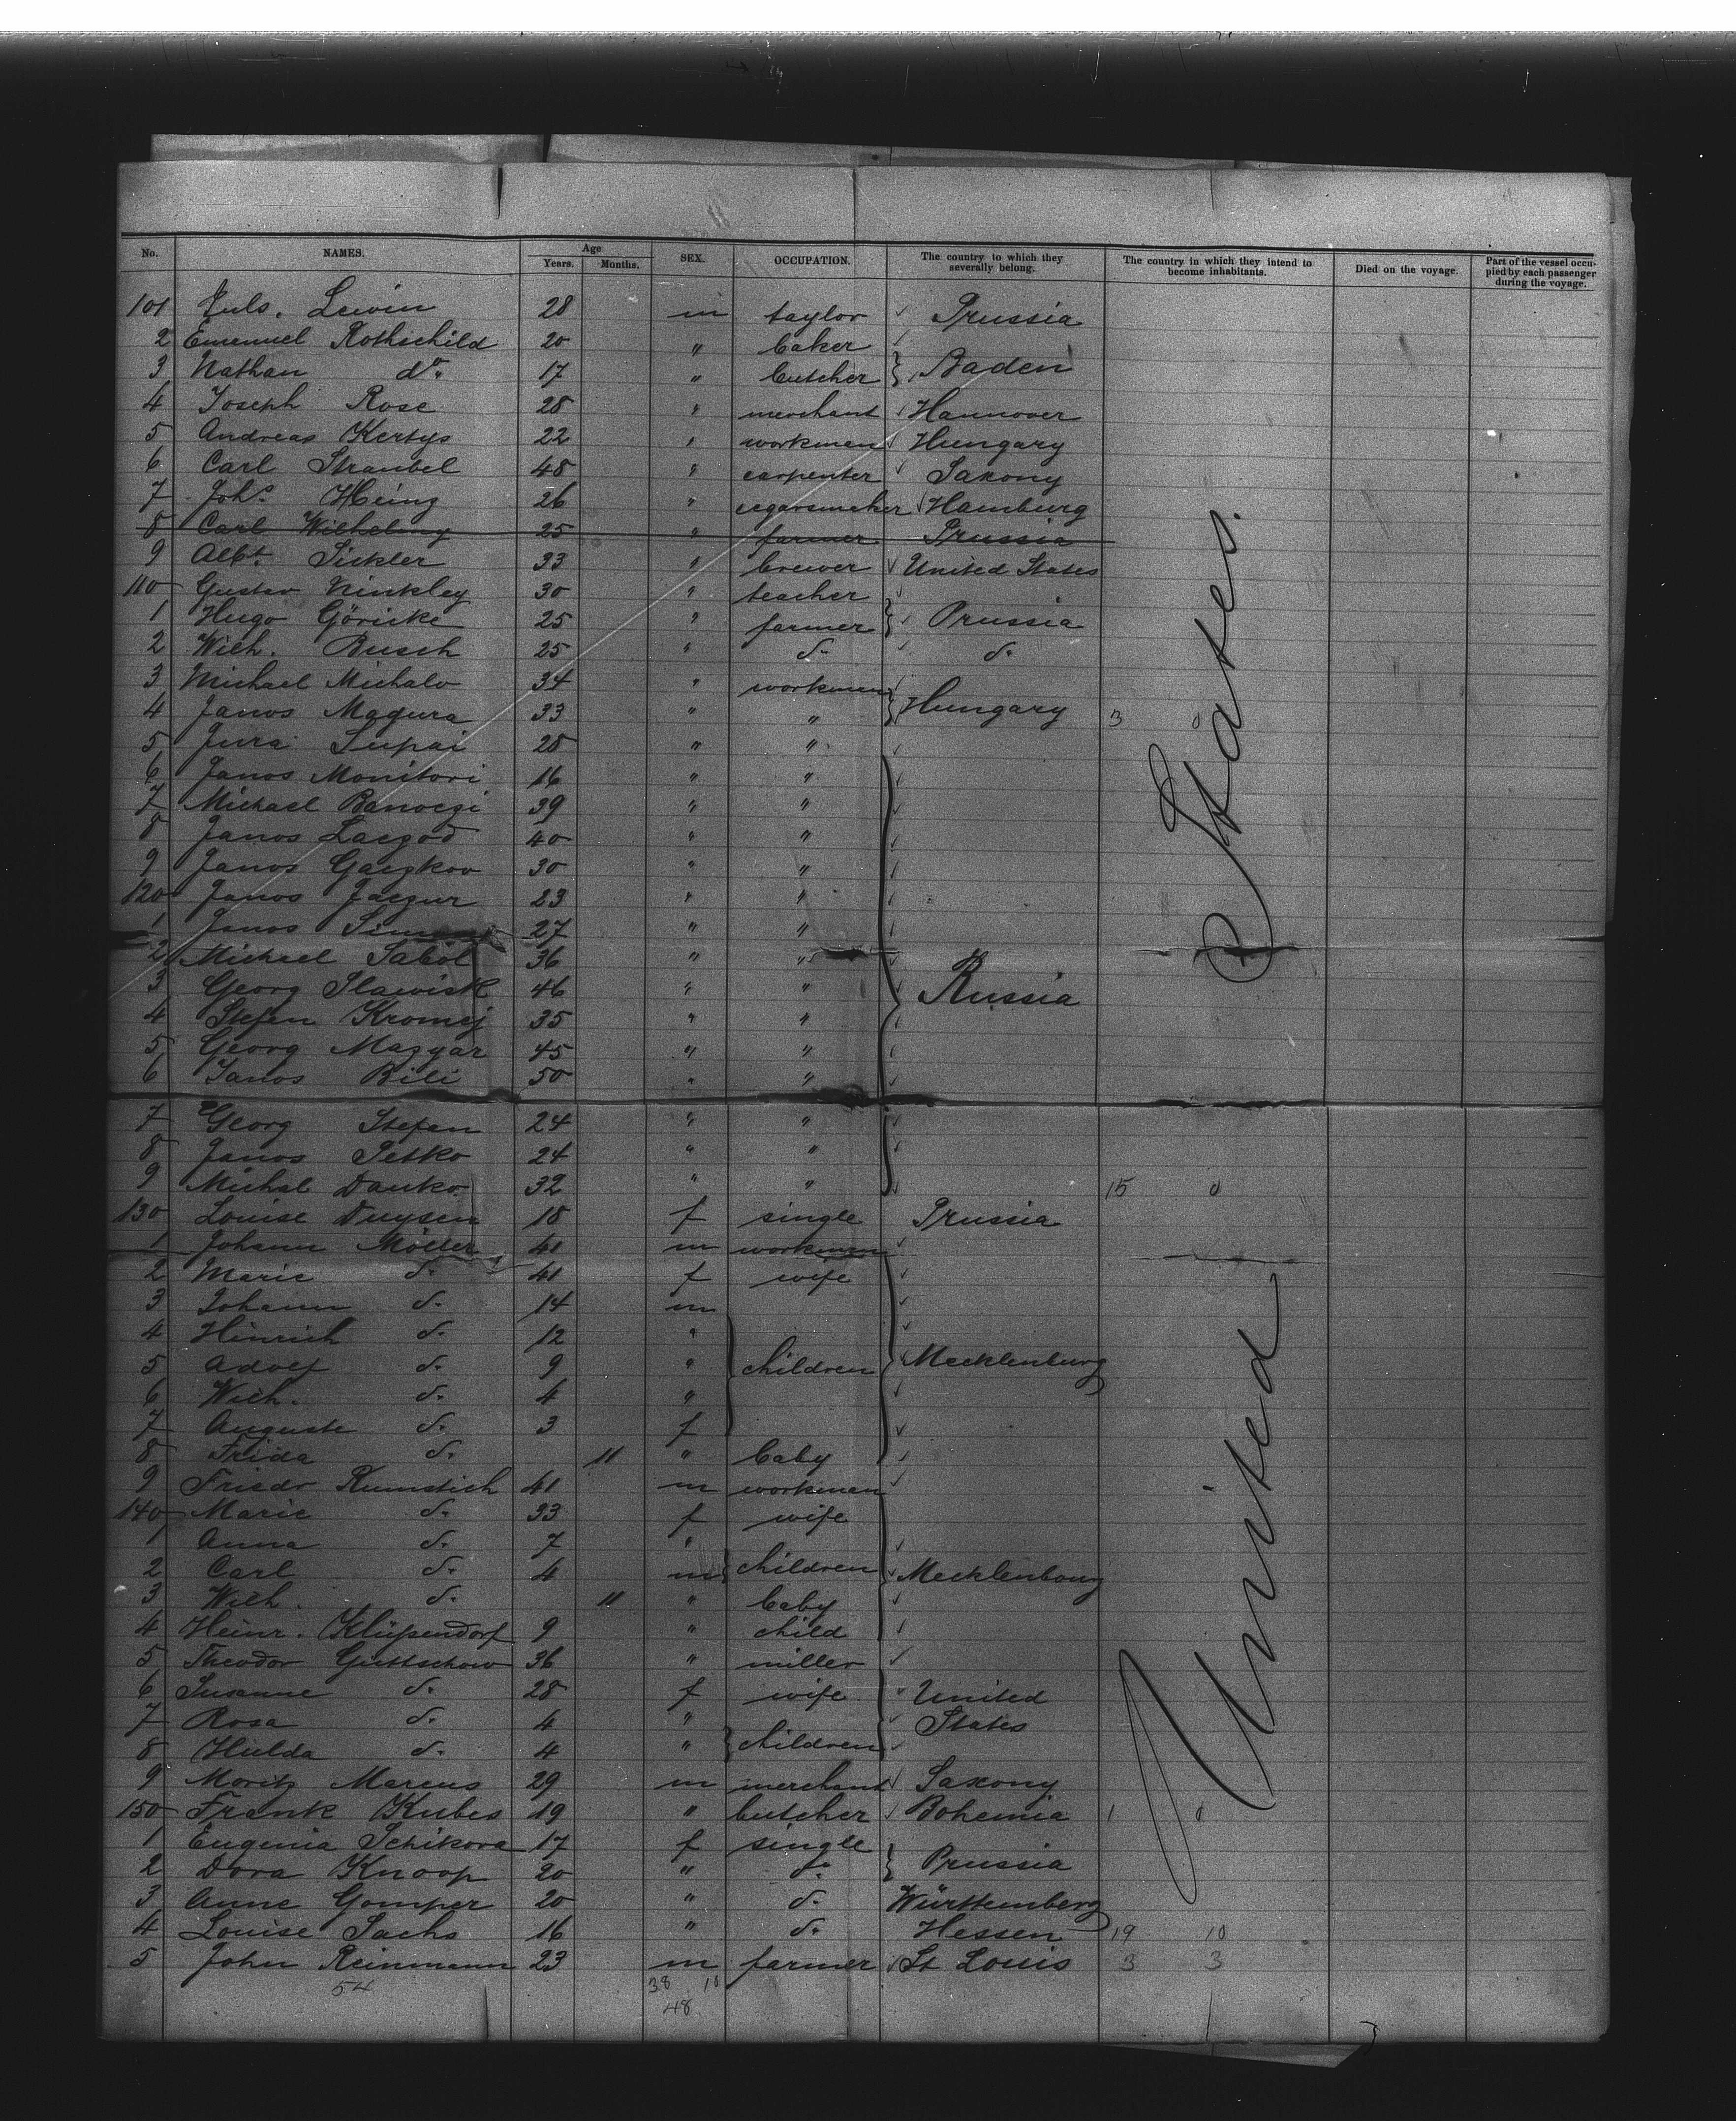 No. NAMES. Age Years. Months. SEX. OCCUPATION. The country to which they severally belong. The country in which they intend to become inhabitants. Died on the voyage. Part of the vessel occupied by each passenger during the voyage.
101 Juls. Lewin 28 m taylor Prussia
2 Emanuel Rothschild 20 " baker
3 Nathan do. 17 " butcher } Baden
4 Joseph Rose 28 " merchant Hannover
5 Andreas Kertys 22 " workman Hungary
6 Carl Straubel 48 " carpenter Saxony
7 Johs. Heinz 26 " cigarsmaker Hamburg
8 Carl Wilhelmy 25 " farmer Prussia
9 Albt. Sickler 33 " brewer United States
110 Gustav Kinkley 30 " teacher
1 Hugo Göricke 25 " farmer } Prussia
2 Wilh. Busch 25 " do. do.
3 Michael Michalo 34 " workman
4 Janos Magura 33 " " } Hungary 3 0
5 Jura Supai 28 " "
6 Janos Monitori 16 " "
7 Michael Banoczi 39 " "
8 Janos Laczod 40 " "
9 Janos Gaczkov 30 " "
120 Janos Jaczur 23 " "
1 Janos 27 " "
2 Michael Sabol 36 " "
3 Georg Slawisk 46 " " } Russia
4 Stefan Kromej 35 " "
5 Georg Magyar 45 " "
6 Janos Bili 50 " "
7 Georg Stefan 24 " "
8 Janos Petko 24 " "
9 Michal Danko 32 " " 15 0
130 Louise Duysen 18 f single Prussia
1 Johann Möller 41 m workman
2 Marie do. 41 f wife
3 Johann do. 14 m
4 Hinrich do. 12 "
5 Adolf do. 9 " children } Mecklenburg
6 Wilh. do. 4 "
7 Auguste do. 3 f
8 Frida do. 11 " baby
9 Friedr Rumstich 41 m workman
140 Marie do. 33 f wife
1 Anna do. 7 "
2 Carl do. 4 m } children } Mecklenbourg
3 Wilh. do. 11 " baby
4 Heinr. Klüssendorf 9 " child
5 Theodor Guttschow 36 " miller
6 Susanne do. 28 f wife United
7 Rosa do. 4 " States
8 Hulda do. 4 " } children
9 Moritz Marcus 29 m merchant Saxony
150 Frank Kubes 19 " butcher Bohemia 1 0
1 Eugenia Schikora 17 f single
2 Dora Knoop 20 " do. } Prussia
3 Anne Gomper 20 " do. Württemberg
4 Louise Sachs 16 " do. Hessen 19 10
5 John Reinmann 23 m farmer St Louis 3 3
54 38 10
48
United States.